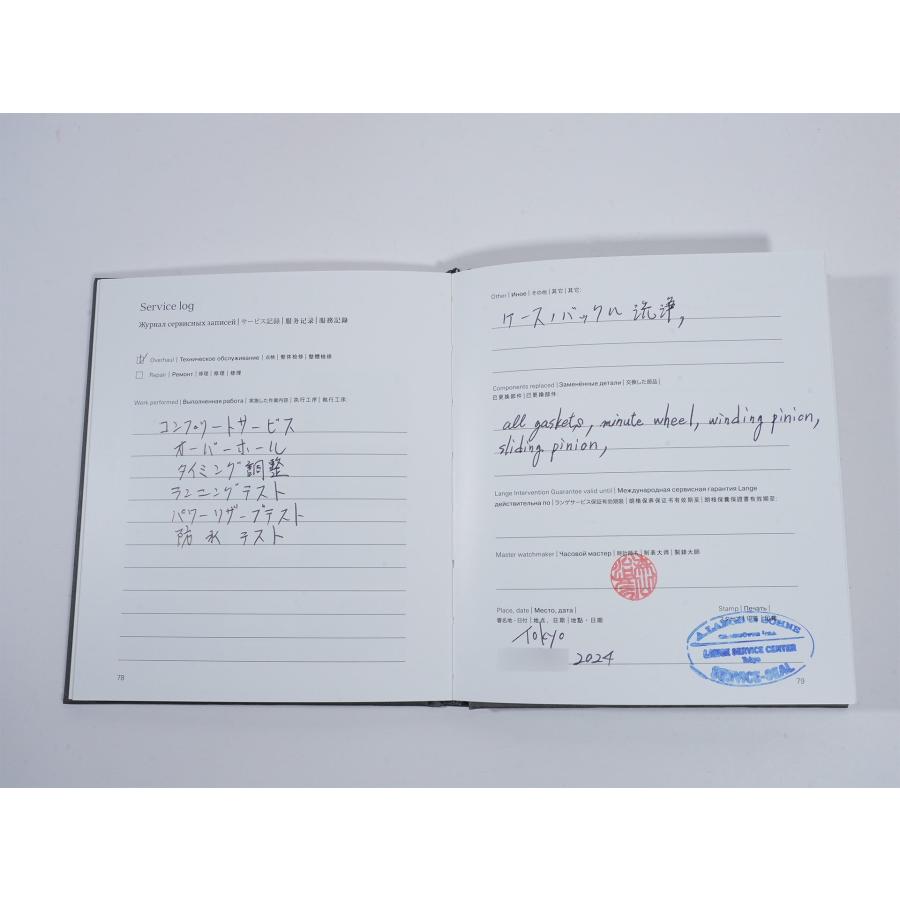 Service log
Журнал сервисных записей | サービス記録 | 服务记录 | 服務記錄
Overhaul | Техническое обслуживание | 点検 | 整体检修 | 整體檢修
Repair | Ремонт | 修理 | 修理 | 修理
Work performed | Выполненная работа | 実施した作業内容 | 执行工序 | 執行工序:
コンプリートサービス
オーバーホール
タイミング調整
ランニングテスト
パワーリザーブテスト
防水テスト
78
Other | Иное | その他 | 其它 | 其它:
ケース/バックル洗浄,
Components replaced | Заменённые детали | 交換した部品 |
已更换部件 | 已更換部件
all gaskets, minute wheel, winding pinion,
sliding pinion,
Lange Intervention Guarantee valid until | Международная сервисная гарантия Lange
действительна по | ランゲサービス保証有効期限 | 朗格保养保证书有效期至 | 朗格保養保證書有效期至:
Master watchmaker | Часовой мастер | 制表大师 | 製錶大師
Place, date | Место, дата |
署名地・日付 | 地点，日期 | 地點，日期
Tokyo
2024
Stamp | Печать |
A. LANGE & SÖHNE
LANGE SERVICE CENTER
Tokyo
SERVICE-SEAL
79